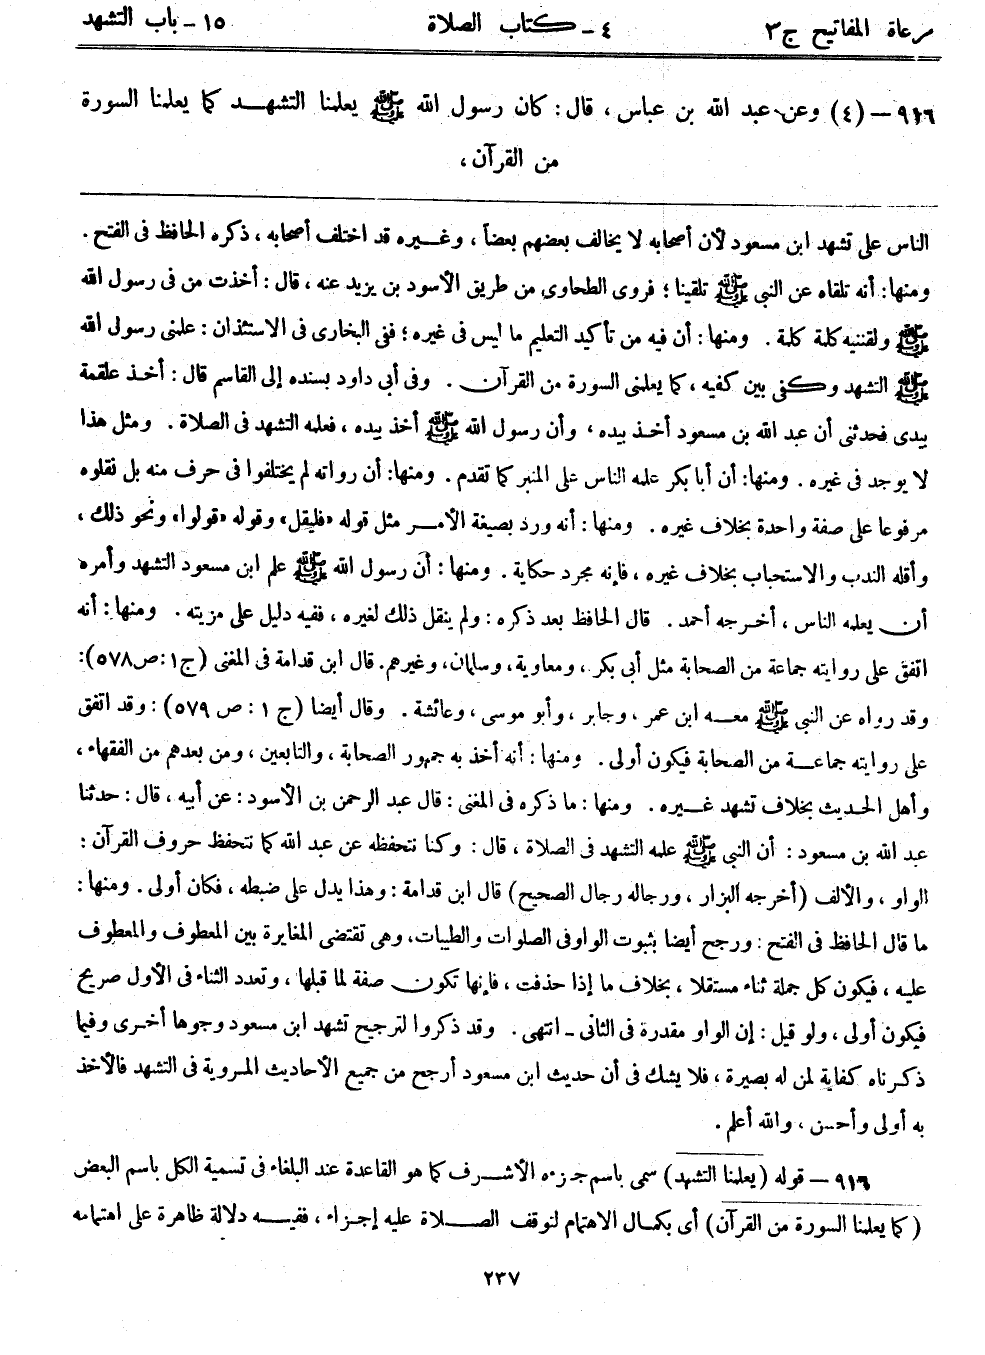 مرعاة المفاتيح ج٣
٤ - كتاب الصلاة
١٥ - باب التشهد
٩١٦ - (٤) وعن عبد الله بن عباس، قال: كان رسول الله ﷺ يعلمنا التشهد كما يعلمنا السورة
من القرآن،
الناس على تشهد ابن مسعود لأن أصحابه لا يخالف بعضهم بعضاً، وغيره قد اختلف أصحابه، ذكره الحافظ فى الفتح.
ومنها: أنه تلقاه عن النبي ﷺ تلقينا؛ فروى الطحاوى من طريق الأسود بن يزيد عنه، قال: أخذت من فى رسول الله
ﷺ ولقننيه كلمة كلمة. ومنها: أن فيه من تأكيد التعليم ما ليس فى غيره؛ ففى البخارى فى الاستئذان: علمنى رسول الله
ﷺ التشهد وكفى بين كفيه، كما يعلمنى السورة من القرآن. وفى أبى داود بسنده إلى القاسم قال: أخذ علقمة
بيدى فحدثنى أن عبد الله بن مسعود أخذ بيده، وأن رسول الله ﷺ أخذ بيده، فعلمه التشهد فى الصلاة. ومثل هذا
لا يوجد فى غيره. ومنها: أن أبا بكر علمه الناس على المنبر كما تقدم. ومنها: أن رواته لم يختلفوا فى حرف منه بل نقلوه
مرفوعا على صفة واحدة بخلاف غيره. ومنها: أنه ورد بصيغة الأمر مثل قوله «فليقل» وقوله «قولوا» ونحو ذلك،
وأقله الندب والاستحباب بخلاف غيره، فإنه مجرد حكاية. ومنها: أن رسول الله ﷺ علم ابن مسعود التشهد وأمره
أن يعلمه الناس، أخرجه أحمد. قال الحافظ بعد ذكره: ولم ينقل ذلك لغيره، ففيه دليل على مزيته. ومنها: أنه
اتفق على روايته جماعة من الصحابة مثل أبى بكر، ومعاوية، وسلمان، وغيرهم. قال ابن قدامة فى المغنى (ج١:ص٥٧٨):
وقد رواه عن النبي ﷺ معه ابن عمر، وجابر، وأبو موسى، وعائشة. وقال أيضا (ج ١: ص ٥٧٩): وقد اتفق
على روايته جماعة من الصحابة فيكون أولى. ومنها: أنه أخذ به جمهور الصحابة، والتابعين، ومن بعدهم من الفقهاء،
وأهل الحديث بخلاف تشهد غيره. ومنها: ما ذكره فى المغنى: قال عبد الرحمن بن الأسود: عن أبيه، قال: حدثنا
عبد الله بن مسعود: أن النبي ﷺ علمه التشهد فى الصلاة، قال: وكنا نتحفظه عن عبد الله كما نتحفظ حروف القرآن:
الواو، والألف (أخرجه البزار، ورجاله رجال الصحيح) قال ابن قدامة: وهذا يدل على ضبطه، فكان أولى. ومنها:
ما قال الحافظ فى الفتح: ورجح أيضا بثبوت الواو فى الصلوات والطيبات، وهى تقتضى المغايرة بين المعطوف والمعطوف
عليه، فيكون كل جملة ثناء مستقلا، بخلاف ما إذا حذفت، فإنها تكون صفة لما قبلها، وتعدد الثناء فى الأول صريح
فيكون أولى، ولو قيل: إن الواو مقدرة فى الثانى - انتهى. وقد ذكروا لترجيح تشهد ابن مسعود وجوها أخرى وفيما
ذكرناه كفاية لمن له بصيرة، فلا يشك فى أن حديث ابن مسعود أرجح من جميع الأحاديث المروية فى التشهد فالأخذ
به أولى وأحسن، والله أعلم.
٩١٦ - قوله (يعلمنا التشهد) سمى باسم جزءه الأشرف كما هو القاعدة عند البلغاء فى تسمية الكل باسم البعض
(كما يعلمنا السورة من القرآن) أى بكمال الاهتمام لتوقف الصلاة عليه إجزاء، ففيه دلالة ظاهرة على اهتمامه
٢٣٧